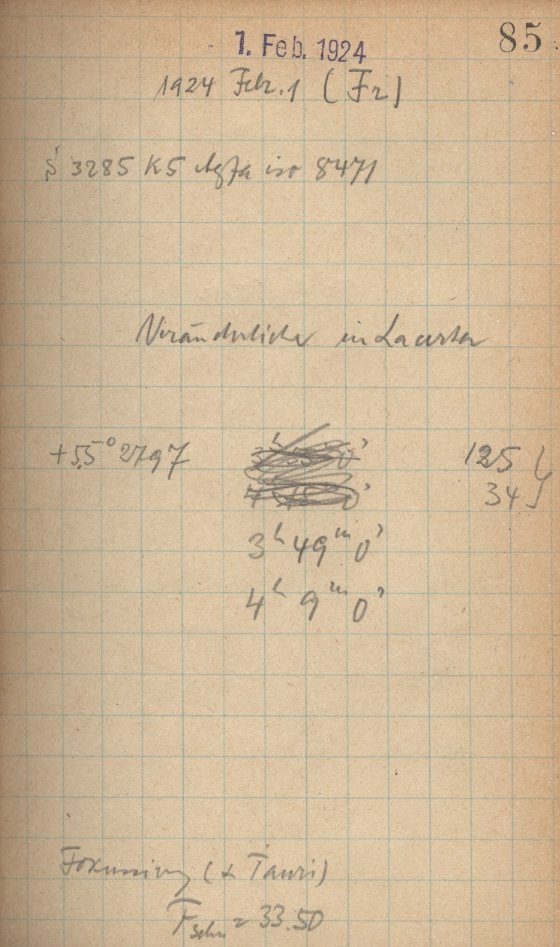 85
1. Feb. 1924
1924 Febr. 1 (Fr)
S 3285 K5 Agfa iso 8471
Veränderliche in Lacerta
+55° 2797 125
34
3ʰ 49ᵐ 0ˢ
4ʰ 9ᵐ 0ˢ
Fokussierung (α Tauri)
F = 33.50